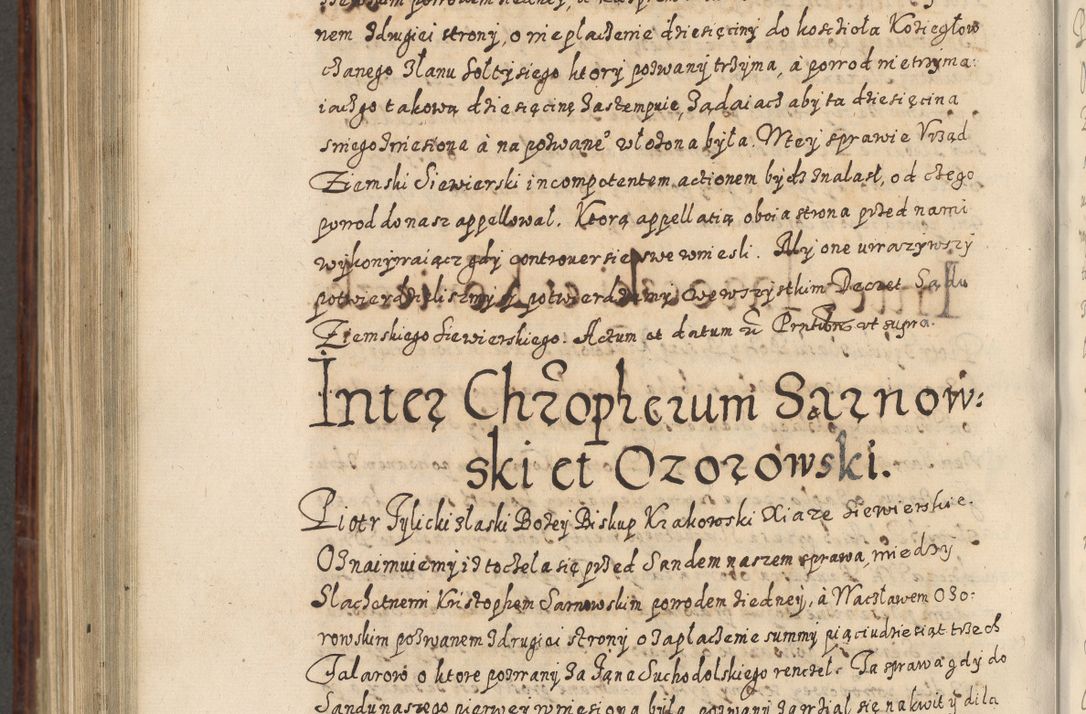 nem zdrugiei strony, o nie płaczenie dziesięciny do kosciola Koziegłow
czanego zlanu Sołtysiego ktory pozwany trzyma, á powod nietrzyma:
iaczgo takową dziesięcinę zastempuie, żądaiacz aby ta dziesięcina
sniego zniesiona á na pozwane° włożona była. Wtey sprawie Vrząd
Ziemski Siewierski incompetentem actionem bydz znalasł, od czego
powod do nasz appellował. Ktorą appellatią oboia strona przed nami
wykonywaiącz gdy controuersie swe wniesli. My one uwazywszy
potwierdzilismy y potwierdzamy we wszystkim Decret Sądu
Ziemskiego Siewierskiego. Actum et datum ut supra.
Inter Chropherum Sarnow:
ski et Ozorowski.
Piotr Tylicki zlaski Bozey Biskup Krakowski Xiaże Siewierskie.
Oznaimuiemy iż toczeła się przed Sandem naszem sprawa, miedzy
Slachetnem Kristophem Sarnowskim powodem ziedney, á Wacsławem Ozo:
rowskim pozwanem zdrugiei strony o zapłaczenie summy pięciudziesiąt trzech
Talarow o ktore pozwany za Jana Suchodolskiego renczeł. Ta sprawa gdy do
Sandu naszego pierwey wniesiona była, pozwany zawział się na kwit y dila